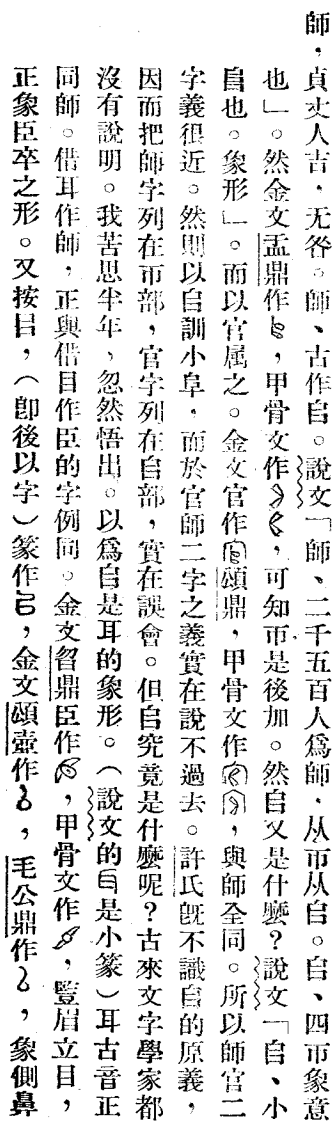 師，貞丈人吉，无咎。師、古作𠂤。說文「師、二千五百人爲師，从帀从𠂤。𠂤、四帀象意
也」。然金文盂鼎作，甲骨文作，可知帀是後加。然𠂤又是什麼？說文「𠂤、小
𨸏也。象形」。而以官屬之。金文官作頌鼎，甲骨文作，與師全同。所以師官二
字義很近。然則以𠂤訓小阜，而於官師二字之義實在說不過去。許氏旣不識𠂤的原義，
因而把師字列在帀部，官字列在𠂤部，實在誤會。但𠂤究竟是什麼呢？古來文字學家都
沒有說明。我苦思半年，忽然悟出。以爲𠂤是耳的象形。（說文的𠂤是小篆）耳古音正
同師。借耳作師，正與借目作臣的字例同。金文曶鼎臣作，甲骨文作，豎眉立目，
正象臣卒之形。又按㠯，（卽後以字）篆作，金文頌壺作，毛公鼎作，象側鼻